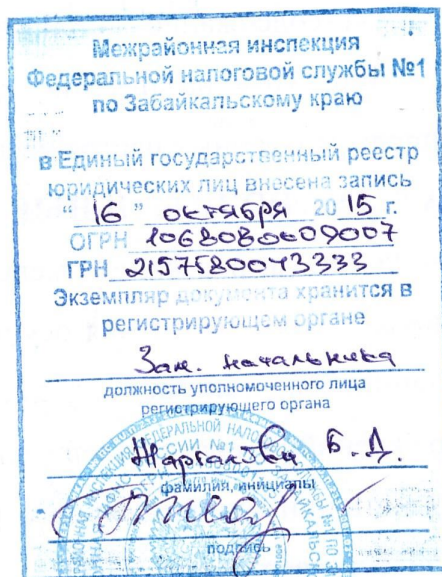 Межрайонная инспекция
Федеральной налоговой службы №1
по Забайкальскому краю
в Единый государственный реестр
юридических лиц внесена запись
“ 16 ” октября 2015 г.
ОГРН 1068080009007
ГРН 2157580043333
Экземпляр документа хранится в
регистрирующем органе
Зам. начальника
должность уполномоченного лица
регистрирующего органа
Б. Д.
фамилия, инициалы
подпись